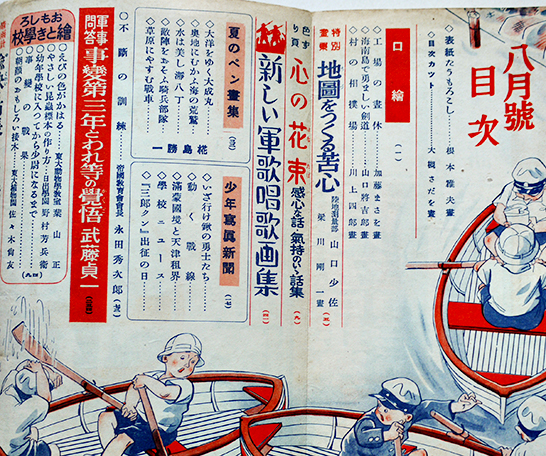 八月號
目次
表紙たうもろこし……根本雅夫畫
◇目次カット……大槻さだを畫
口繪
◇工場の晝休……加藤まさを畫
◇海南島で勇ましい劍道……山口將吉郎畫
◇村の相撲場……川上四郎畫
(一)
特別畫東
地圖をつくる苦心
陸地測量部 山口少佐
梁川剛一畫
(五)
色ずり頁
心の花束
感心な話・氣持のいゝ話集
(九)
新しい軍歌唱歌画集
(一一)
夏のペン畫集
◇大洋をゆく大成丸
◇奥地にむかふ海の荒鷲
◇水は美し湖八丁
◇敵陣をおそふ騎兵部隊
◇草原にやすむ戰車
椛島勝一
少年寫眞新聞
(一七)
◇いざ行け鍬の勇士たち
◇動く戰線
◇滿蒙國境と天津租界
◇學校ニュース
◇『三郎クン』出征の日
○不斷の訓練……帝國教育會會長 永田秀次郎
軍事問答
事變第三年とわれ等の覺悟
武藤貞一
おもしろ繪とき學校
○えびの色がかはる……東大動物學教室 葉山正
○やさしい昆蟲標本の作り方……日出學園 野村芳兵衛
○幼年學校に入つてから少尉になるまで
○事變の戰果
○朝顏のおもしろい接木……東大植物園 佐々木尚友
(九四)